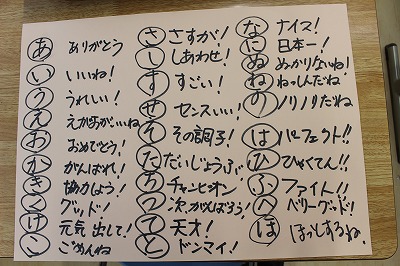 あ ありがとう
い いいね!
う うれしい!
え えがおがいいね
お おめでとう!
か がんばれ!
き 協力しよう!
く グッド!
け 元気出して!
こ ごめんね
さ さすが!
し しあわせ!
す すごい!
せ センスいい!
そ その調子!
た だいじょうぶ
ち チャンピオン
つ 次、がんばろう!
て 天才!
と ドンマイ!
な ナイス!
に 日本一!
ぬ ぬかりないね!
ね ねっしんだね
の ノリノリだね
は パーフェクト!!
ひ ひゃくてん!!
ふ ファイト!!
へ ベリーグッド!
ほ ほっとするね